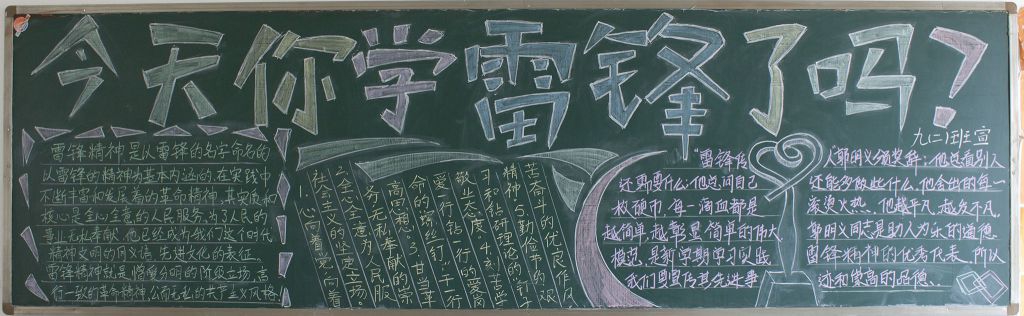 今天你学雷锋了吗?
九二班宣
雷锋精神是以雷锋的名字命名的
以雷锋的精神为基本内涵的在实践中
不断丰富和发展着的革命精神,其实质和
核心是全心全意的人民服务,为了人民的
事业无私奉献,他已经成为我们这个时代
精神文明的同义语、先进文化的表征。
雷锋精神就是:憎爱分明的阶级立场,言
行一致的革命精神,公而无私的共产主义风格
1、心向着党、向着
社会主义的坚定立场
2、全心全意为人民服
务、无私奉献的崇
高思想。3、甘当革
命的螺丝钉,干一行
爱一行,钻一行的爱岗
敬业态度。4、刻苦学
习和钻研理论的钉子
精神。5、勤俭节约、艰
苦奋斗的优良作风
"雷锋传人"郭明义颁奖辞:他总看别人
还需要什么;他总问自己还能多做些什么,他舍出的每一
枚硬币,每一滴血都是滚烫火热。他越平凡,越发不凡,
越简单,越彰显简单的伟大。郭明义同志是助人为乐的道德
模范,是新学期学习实践雷锋精神的优秀代表,所以
我们要宣传其先进事迹和崇高的品德。